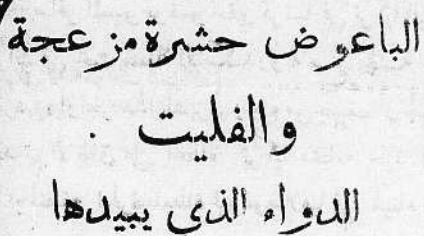 الباعوض حشرة مزعجة
والفليت .
الدواء الذى يبيدها